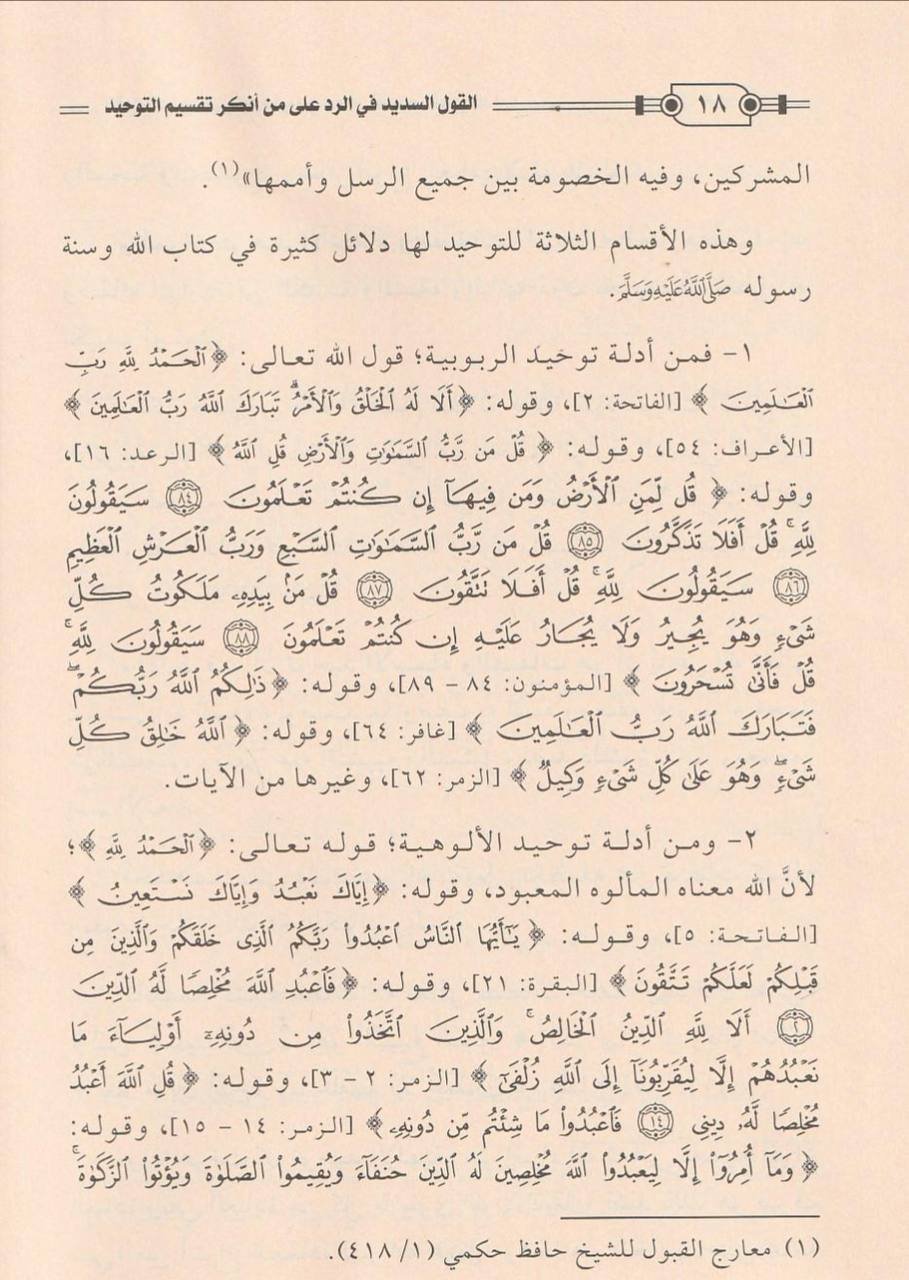 ١٨ القول السديد في الرد على من أنكر تقسيم التوحيد
المشركين، وفيه الخصومة بين جميع الرسل وأممها»(١).
وهذه الأقسام الثلاثة للتوحيد لها دلائل كثيرة في كتاب الله وسنة
رسوله صَلَّى اللَّهُ عَلَيْهِ وَسَلَّمَ.
١- فمن أدلة توحيد الربوبية؛ قول الله تعالى: ﴿ٱلْحَمْدُ لِلَّهِ رَبِّ
ٱلْعَـٰلَمِينَ﴾ [الفاتحة: ٢]، وقوله: ﴿أَلَا لَهُ ٱلْخَلْقُ وَٱلْأَمْرُ ۗ تَبَارَكَ ٱللَّهُ رَبُّ ٱلْعَـٰلَمِينَ﴾
[الأعراف: ٥٤]، وقوله: ﴿قُلْ مَن رَّبُّ ٱلسَّمَـٰوَٰتِ وَٱلْأَرْضِ قُلِ ٱللَّهُ﴾ [الرعد: ١٦]،
وقوله: ﴿قُل لِّمَنِ ٱلْأَرْضُ وَمَن فِيهَآ إِن كُنتُمْ تَعْلَمُونَ ٨٤ سَيَقُولُونَ
لِلَّهِ ۚ قُلْ أَفَلَا تَذَكَّرُونَ ٨٥ قُلْ مَن رَّبُّ ٱلسَّمَـٰوَٰتِ ٱلسَّبْعِ وَرَبُّ ٱلْعَرْشِ ٱلْعَظِيمِ
٨٦ سَيَقُولُونَ لِلَّهِ ۚ قُلْ أَفَلَا تَتَّقُونَ ٨٧ قُلْ مَنۢ بِيَدِهِۦ مَلَكُوتُ كُلِّ
شَىْءٍ وَهُوَ يُجِيرُ وَلَا يُجَارُ عَلَيْهِ إِن كُنتُمْ تَعْلَمُونَ ٨٨ سَيَقُولُونَ لِلَّهِ ۚ
قُلْ فَأَنَّىٰ تُسْحَرُونَ﴾ [المؤمنون: ٨٤ - ٨٩]، وقوله: ﴿ذَٰلِكُمُ ٱللَّهُ رَبُّكُمْ ۖ
فَتَبَارَكَ ٱللَّهُ رَبُّ ٱلْعَـٰلَمِينَ﴾ [غافر: ٦٤]، وقوله: ﴿ٱللَّهُ خَـٰلِقُ كُلِّ
شَىْءٍ ۖ وَهُوَ عَلَىٰ كُلِّ شَىْءٍ وَكِيلٌ﴾ [الزمر: ٦٢]، وغيرها من الآيات.
٢- ومن أدلة توحيد الألوهية؛ قوله تعالى: ﴿ٱلْحَمْدُ لِلَّهِ﴾؛
لأنَّ الله معناه المألوه المعبود، وقوله: ﴿إِيَّاكَ نَعْبُدُ وَإِيَّاكَ نَسْتَعِينُ﴾
[الفاتحة: ٥]، وقوله: ﴿يَـٰٓأَيُّهَا ٱلنَّاسُ ٱعْبُدُوا۟ رَبَّكُمُ ٱلَّذِى خَلَقَكُمْ وَٱلَّذِينَ مِن
قَبْلِكُمْ لَعَلَّكُمْ تَتَّقُونَ﴾ [البقرة: ٢١]، وقوله: ﴿فَٱعْبُدِ ٱللَّهَ مُخْلِصًا لَّهُ ٱلدِّينَ
٢ أَلَا لِلَّهِ ٱلدِّينُ ٱلْخَالِصُ ۚ وَٱلَّذِينَ ٱتَّخَذُوا۟ مِن دُونِهِۦٓ أَوْلِيَآءَ مَا
نَعْبُدُهُمْ إِلَّا لِيُقَرِّبُونَآ إِلَى ٱللَّهِ زُلْفَىٰٓ﴾ [الزمر: ٢ - ٣]، وقوله: ﴿قُلِ ٱللَّهَ أَعْبُدُ
مُخْلِصًا لَّهُۥ دِينِى ١٤ فَٱعْبُدُوا۟ مَا شِئْتُم مِّن دُونِهِۦ﴾ [الزمر: ١٤ - ١٥]، وقوله:
﴿وَمَآ أُمِرُوٓا۟ إِلَّا لِيَعْبُدُوا۟ ٱللَّهَ مُخْلِصِينَ لَهُ ٱلدِّينَ حُنَفَآءَ وَيُقِيمُوا۟ ٱلصَّلَوٰةَ وَيُؤْتُوا۟ ٱلزَّكَوٰةَ ۚ
(١) معارج القبول للشيخ حافظ حكمي (١/ ٤١٨).